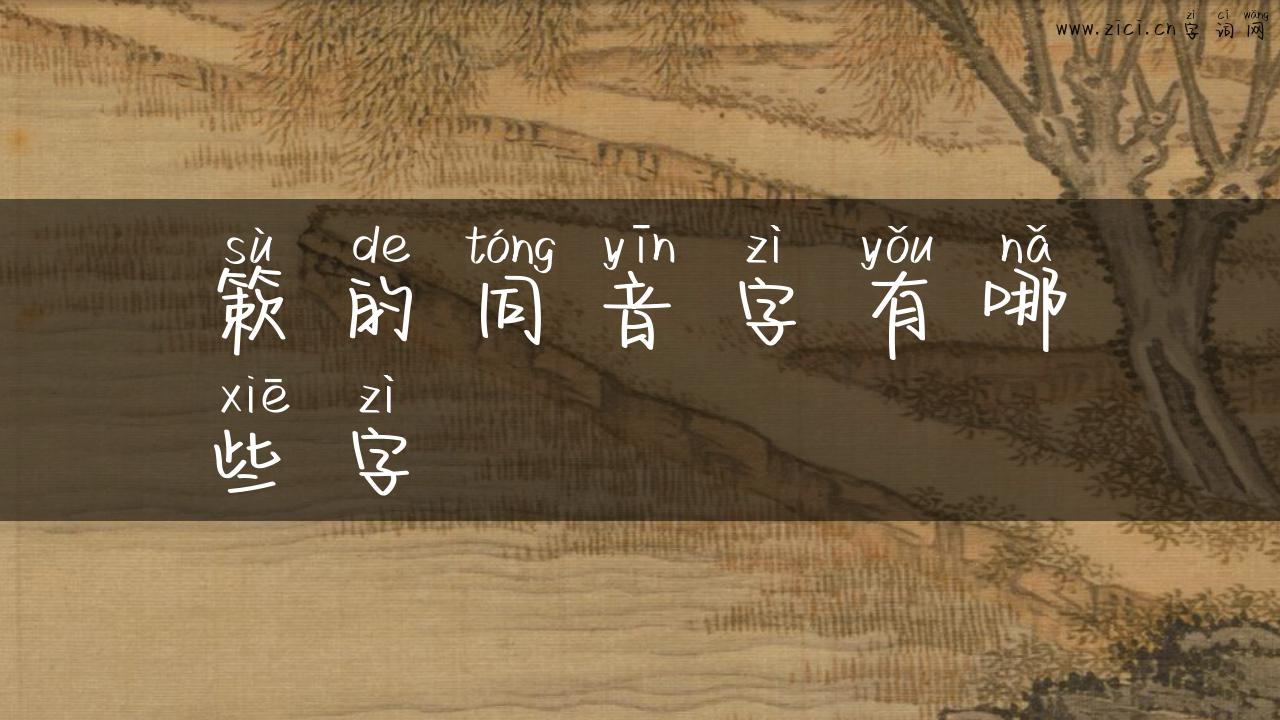 zì cí wǎng
www.zici.cn字词网
sù de tóng yīn zì yǒu nǎ
簌的同音字有哪
xiē zì
些字